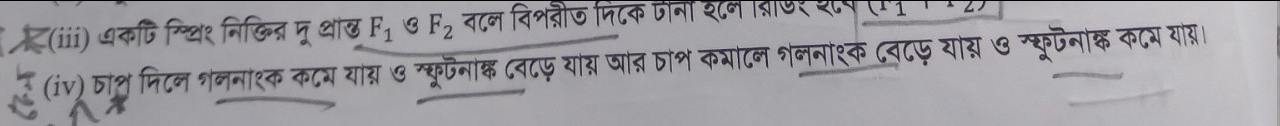 (iii) একটি স্থির নিক্তির দু প্রান্ত F₁ ও F₂ বলে বিপরীত দিকে টানা হলে
(iv) চাপ দিলে গলনাংক কমে যায় ও স্ফূটনাঙ্ক বেড়ে যায় আর চাপ কমালে গলনাংক বেড়ে যায় ও স্ফূটনাঙ্ক কমে যায়।